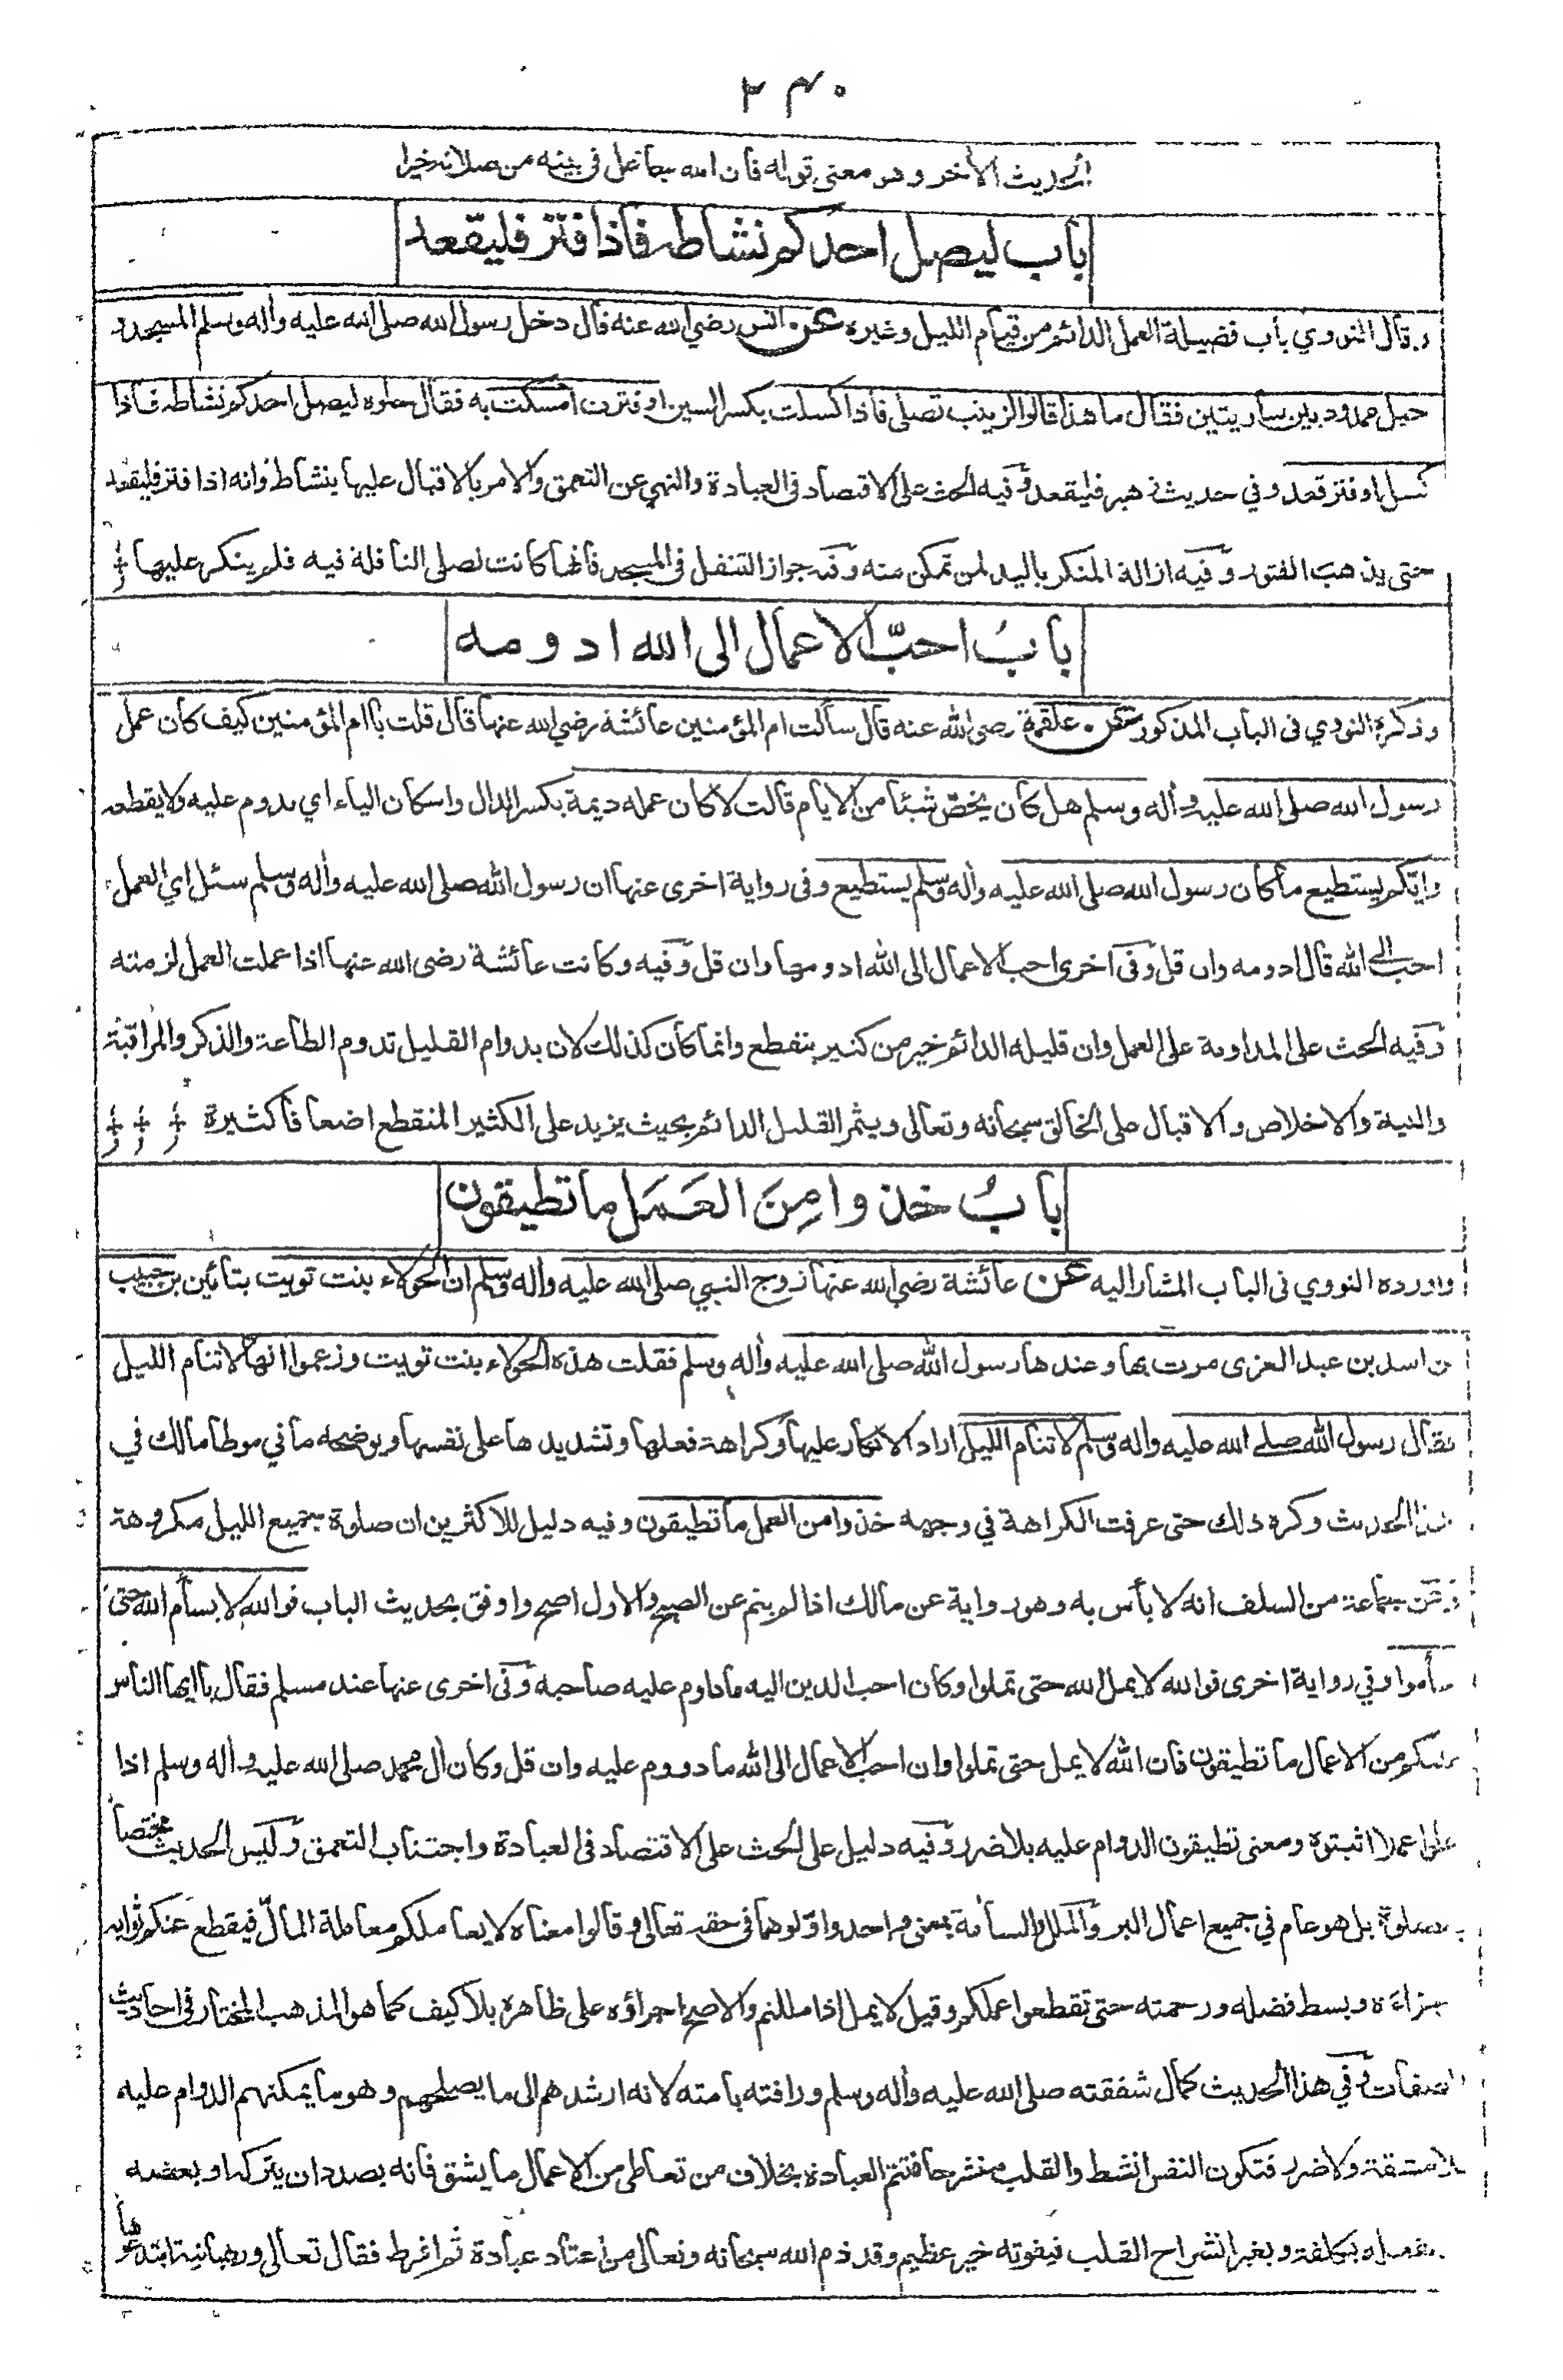 ٢٣٠
الحديث الآخر وهو معنى قوله فان الله جاعل في بيته من صلاته خيرا
باب ليصل احدكم نشاطه فاذا فتر فليقعد
وقال النووي باب فضيلة العمل الدائم من قيام الليل وغيره عن انس رضي الله عنه قال دخل رسول الله صلى الله عليه وأله وسلم المسجد و
حبل ممدود بين ساريتين فقال ما هذا قالوا لزينب تصلي فاذا كسلت بكسر السين او فترت امسكت به فقال حلوه ليصل احدكم نشاطه فاذا
كسل او فتر قعد وفي حديث زهير فليقعد وفيه الحث على الاقتصاد في العبادة والنهي عن التعمق والامر بالاقبال عليها بنشاط وانه اذا فتر فليقعد
حتى يذهب الفتور وفيه ازالة المنكر باليد لمن تمكن منه وفيه جواز التنفل في المسجد فانها كانت تصلي النافلة فيه فلم ينكر عليها
باب احب الاعمال الى الله ادومه
وذكره النووي في الباب المذكور عن علقمة رضي الله عنه قال سألت ام المؤمنين عائشة رضي الله عنها قال قلت يا ام المؤمنين كيف كان عمل
رسول الله صلى الله عليه وأله وسلم هل كان يخص شيئا من الايام قالت لا كان عمله ديمة بكسر الدال واسكان الياء اي يدوم عليه ولا يقطعه
وايكم يستطيع ما كان رسول الله صلى الله عليه وأله وسلم يستطيع وفي رواية اخرى عنها ان رسول الله صلى الله عليه وأله وسلم سئل اي العمل
احب الى الله قال ادومه وان قل وفي اخرى احب الاعمال الى الله ادومها وان قل وفيه وكانت عائشة رضي الله عنها اذا عملت العمل لزمته
وفيه الحث على المداومة على العمل وان قليله الدائم خير من كثير ينقطع وانما كان كذلك لان بدوام القليل تدوم الطاعة والذكر والمراقبة
والنية والاخلاص والاقبال على الخالق سبحانه وتعالى ويثمر القليل الدائم بحيث يزيد على الكثير المنقطع اضعافا كثيرة
باب خذوا من العمل ما تطيقون
واورده النووي في الباب المشار اليه عن عائشة رضي الله عنها زوج النبي صلى الله عليه وأله وسلم ان الحولاء بنت تويت بتائين بن حبيب
بن اسد بن عبد العزى مرت بها وعندها رسول الله صلى الله عليه وأله وسلم فقلت هذه الحولاء بنت تويت وزعموا انها لا تنام الليل
فقال رسول الله صلى الله عليه وأله وسلم لا تنام الليل اراد الانكار عليها وكراهة فعلها وتشديدها على نفسها ويوضحه ما في موطا مالك في
هذا الحديث وكره ذلك حتى عرفت الكراهة في وجهه خذوا من العمل ما تطيقون وفيه دليل للاكثرين ان صلوة جميع الليل مكروهة
وعن جماعة من السلف انه لا بأس به وهو رواية عن مالك اذا لم ينم عن الصبح والاول اصح واوفق بحديث الباب فوالله لا يسأم الله حتى
تسأموا وفي رواية اخرى فوالله لا يمل الله حتى تملوا وكان احب الدين اليه ما داوم عليه صاحبه وفي اخرى عنها عند مسلم فقال يا ايها الناس
عليكم من الاعمال ما تطيقون فان الله لا يمل حتى تملوا وان احب الاعمال الى الله ما دووم عليه وان قل وكان أل محمد صلى الله عليه وأله وسلم اذا
عملوا عملا اثبتوه ومعنى تطيقون الدوام عليه بلا ضرر وفيه دليل على الحث على الاقتصاد في العبادة واجتناب التعمق وليس الحديث مختصا
بالصلوة بل هو عام في جميع اعمال البر والملل والسأمة بمعنى واحد واولوهما في حقه تعالى وقالوا معناه لا يعاملكم معاملة المال فيقطع عنكم ثوابه
جزاءه وبسط فضله ورحمته حتى تقطعوا عملكم وقيل لا يمل اذا مللتم والاصح اجراؤه على ظاهره بلا كيف كما هو المذهب المختار في احاديث
الصفات وفي هذا الحديث كمال شفقته صلى الله عليه وأله وسلم ورافته بامته لانه ارشدهم الى ما يصلحهم وهو ما يمكنهم الدوام عليه
بلا مشقة ولا ضرر فتكون النفس انشط والقلب منشرحا فتتم العبادة بخلاف من تعاطى من الاعمال ما يشق فانه بصدد ان يتركه او بعضه
يفعله بكلفة وبغير انشراح القلب فيفوته خير عظيم وقد ذم الله سبحانه وتعالى من اعتاد عبادة ثم افرط فقال تعالى ورهبانية ابتدعوها